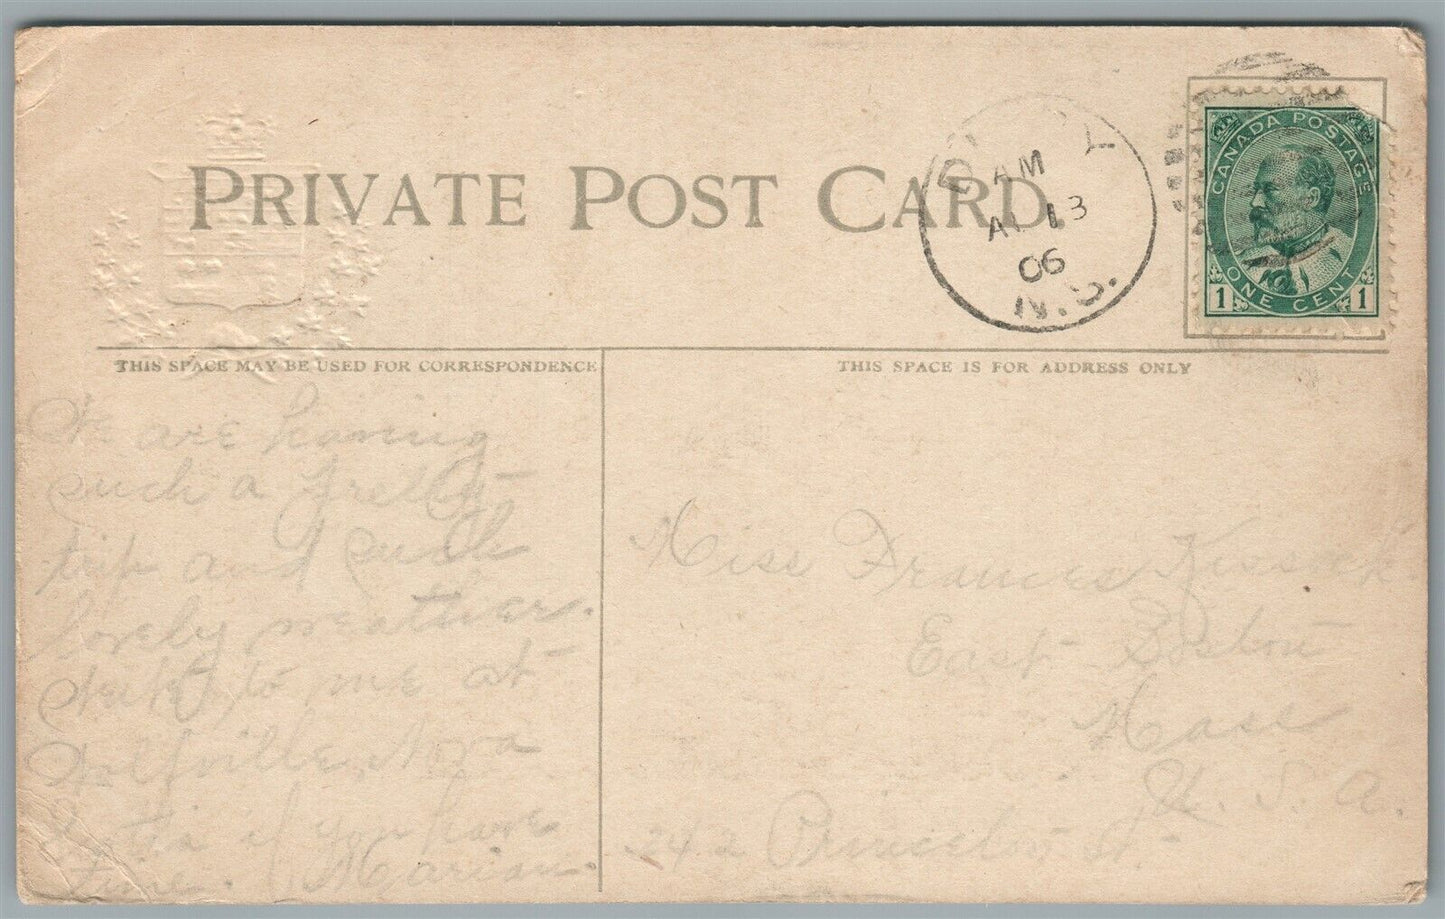 PRIVATE POST CARD
AM
AU 13
06
N.S.
CANADA POSTAGE
1 ONE CENT 1
THIS SPACE MAY BE USED FOR CORRESPONDENCE
THIS SPACE IS FOR ADDRESS ONLY
We are having
such a pretty
trip and such
lovely weather.
to me at
Wolfville, Nova
Scotia if you have
time. Marian.
Miss Frances Kissock
East Boston
Mass
U. S. A.
242 Princeton St